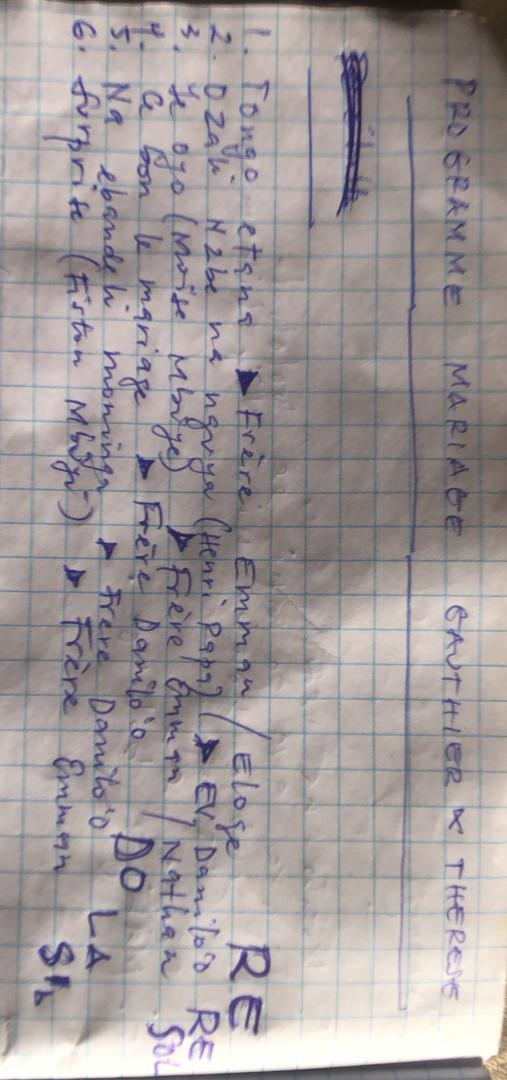 PROGRAMME MARIAGE GAUTHIER & THERESE
1. Tongo etana ► Frère Emman / Eloge RE
2. Ozali Nzbe na nguya (Henri Papa) ► EV, Danilo'o RE
3. Ye oyo (Moïse Mbuye) ► Frère Emman / Nathan SOL
4. C bon le mariage ► Frère Danilo'o DO
5. Na ebandeli moninga ► Frère Danilo'o LA
6. Surprise (Fiston Mbuyi) ► Frère Emman